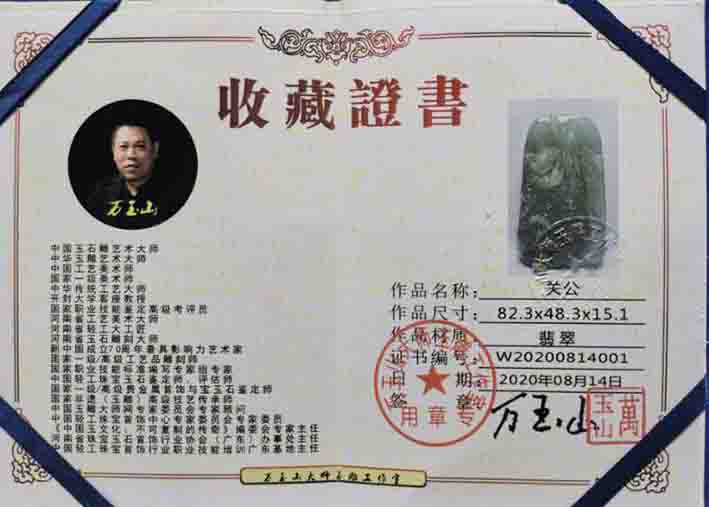 收藏證書
万玉山
中国玉石雕艺术大师
中华玉雕艺术大师
中国工艺美术师
国家一级美术师
中华传统工艺大师
开封大学客座教授
国家职业技能鉴定高级考评员
河南省工艺美术大师
河南省轻工大工匠
河南省玉石雕刻大师
新中国成立70周年最具影响力艺术家
国家一级/高级工艺品雕刻师
国家职业技能标准编写专家组专家
中国轻工珠宝玉石鉴定师、评估师
国家一级/高级贵金属首饰与宝玉石鉴定师
国家非遗(玉雕)高级技艺传承师
中国玉雕大师网专家委员会专家顾问
中国轻工珠宝首饰中心专家委员会专家委员
《中国玉文化:不可复制的传奇》编委会专家主任
河南省珠宝玉石首饰行业协会(广东)办事处主任
中国轻工珠宝首饰行业职业技能培训广东基地主任
作品名称: 关公
作品尺寸: 82.3x48.3x15.1
作品材质: 翡翠
证书编号: W20200814001
日 期: 2020年08月14日
签 章: 万玉山
萬玉山
专用章
万玉山大师玉雕工作室